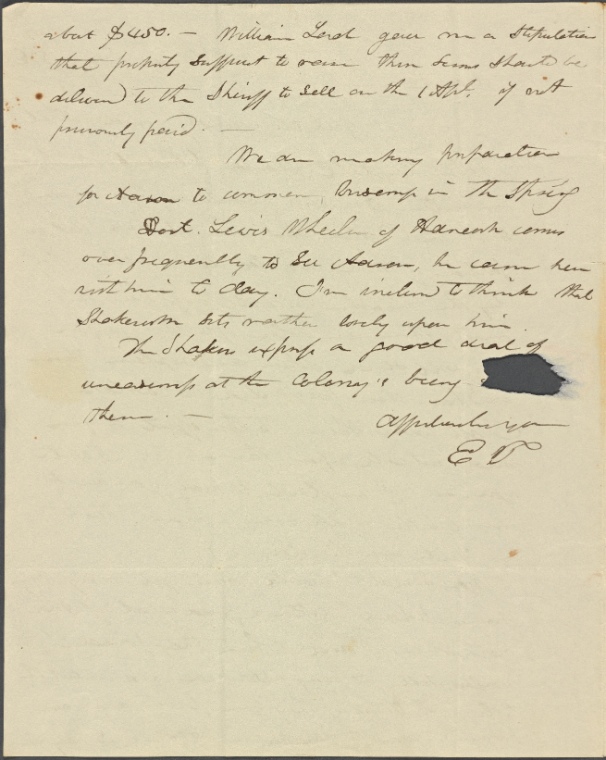 about $450. — William Lord gave me a stipulation
that property sufficient to raise this sum should be
delivered to the Sheriff to sell on the 1 Apl. if not
previously paid. —
We are making preparation
for Aaron to commence business in the Spring
Doct. Lewis Wheeler of Hancock comes
over frequently to see Aaron, he came here
with him to day. I'm inclined to think that
Shakerism sits rather loosly upon him.
The Shakers express a good deal of
uneasiness at the Colony's being
them. —
Affectionately your
E T